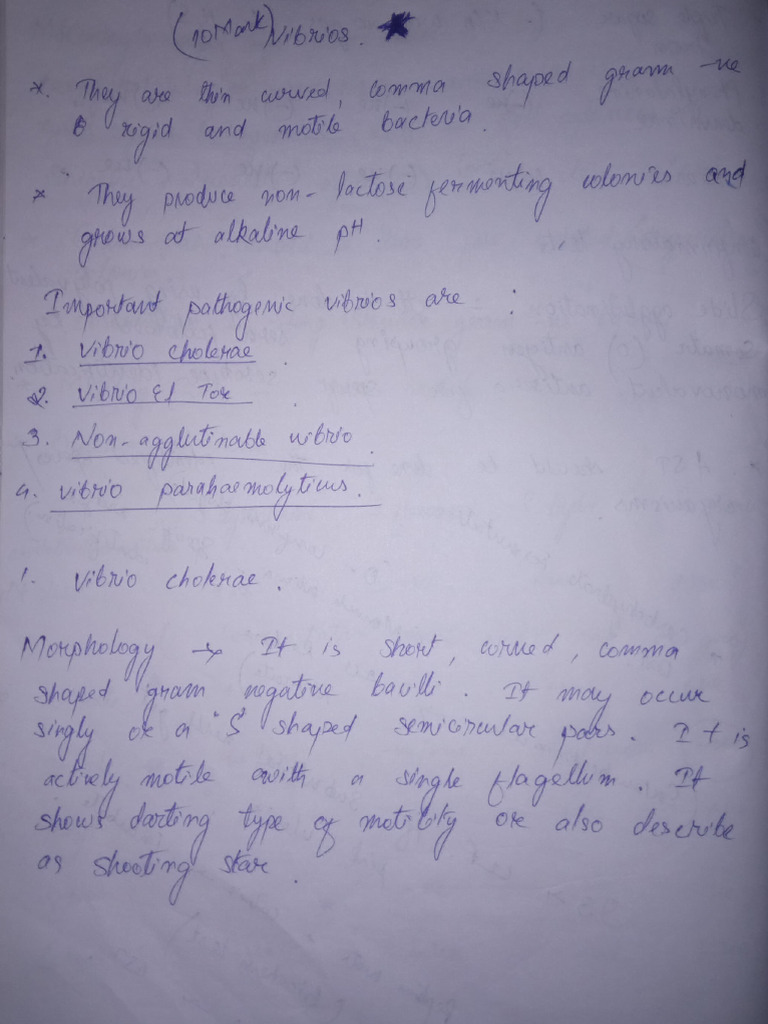 (10 Mark) Vibrios. ★
*. They are thin curved, comma shaped gram -ve
rigid and motile bacteria.
* They produce non-lactose fermenting colonies and
grows at alkaline pH.
Important pathogenic vibrios are :
1. Vibrio cholerae.
2. Vibrio El Tor.
3. Non-agglutinable vibrio.
4. Vibrio parahaemolyticus.
1. Vibrio cholerae.
Morphology → It is short, curved, comma
shaped gram negative bacilli. It may occur
singly or a 'S' shaped semicircular pars. It is
actively motile with a single flagellum. It
shows darting type of motility or also describe
as shooting star.